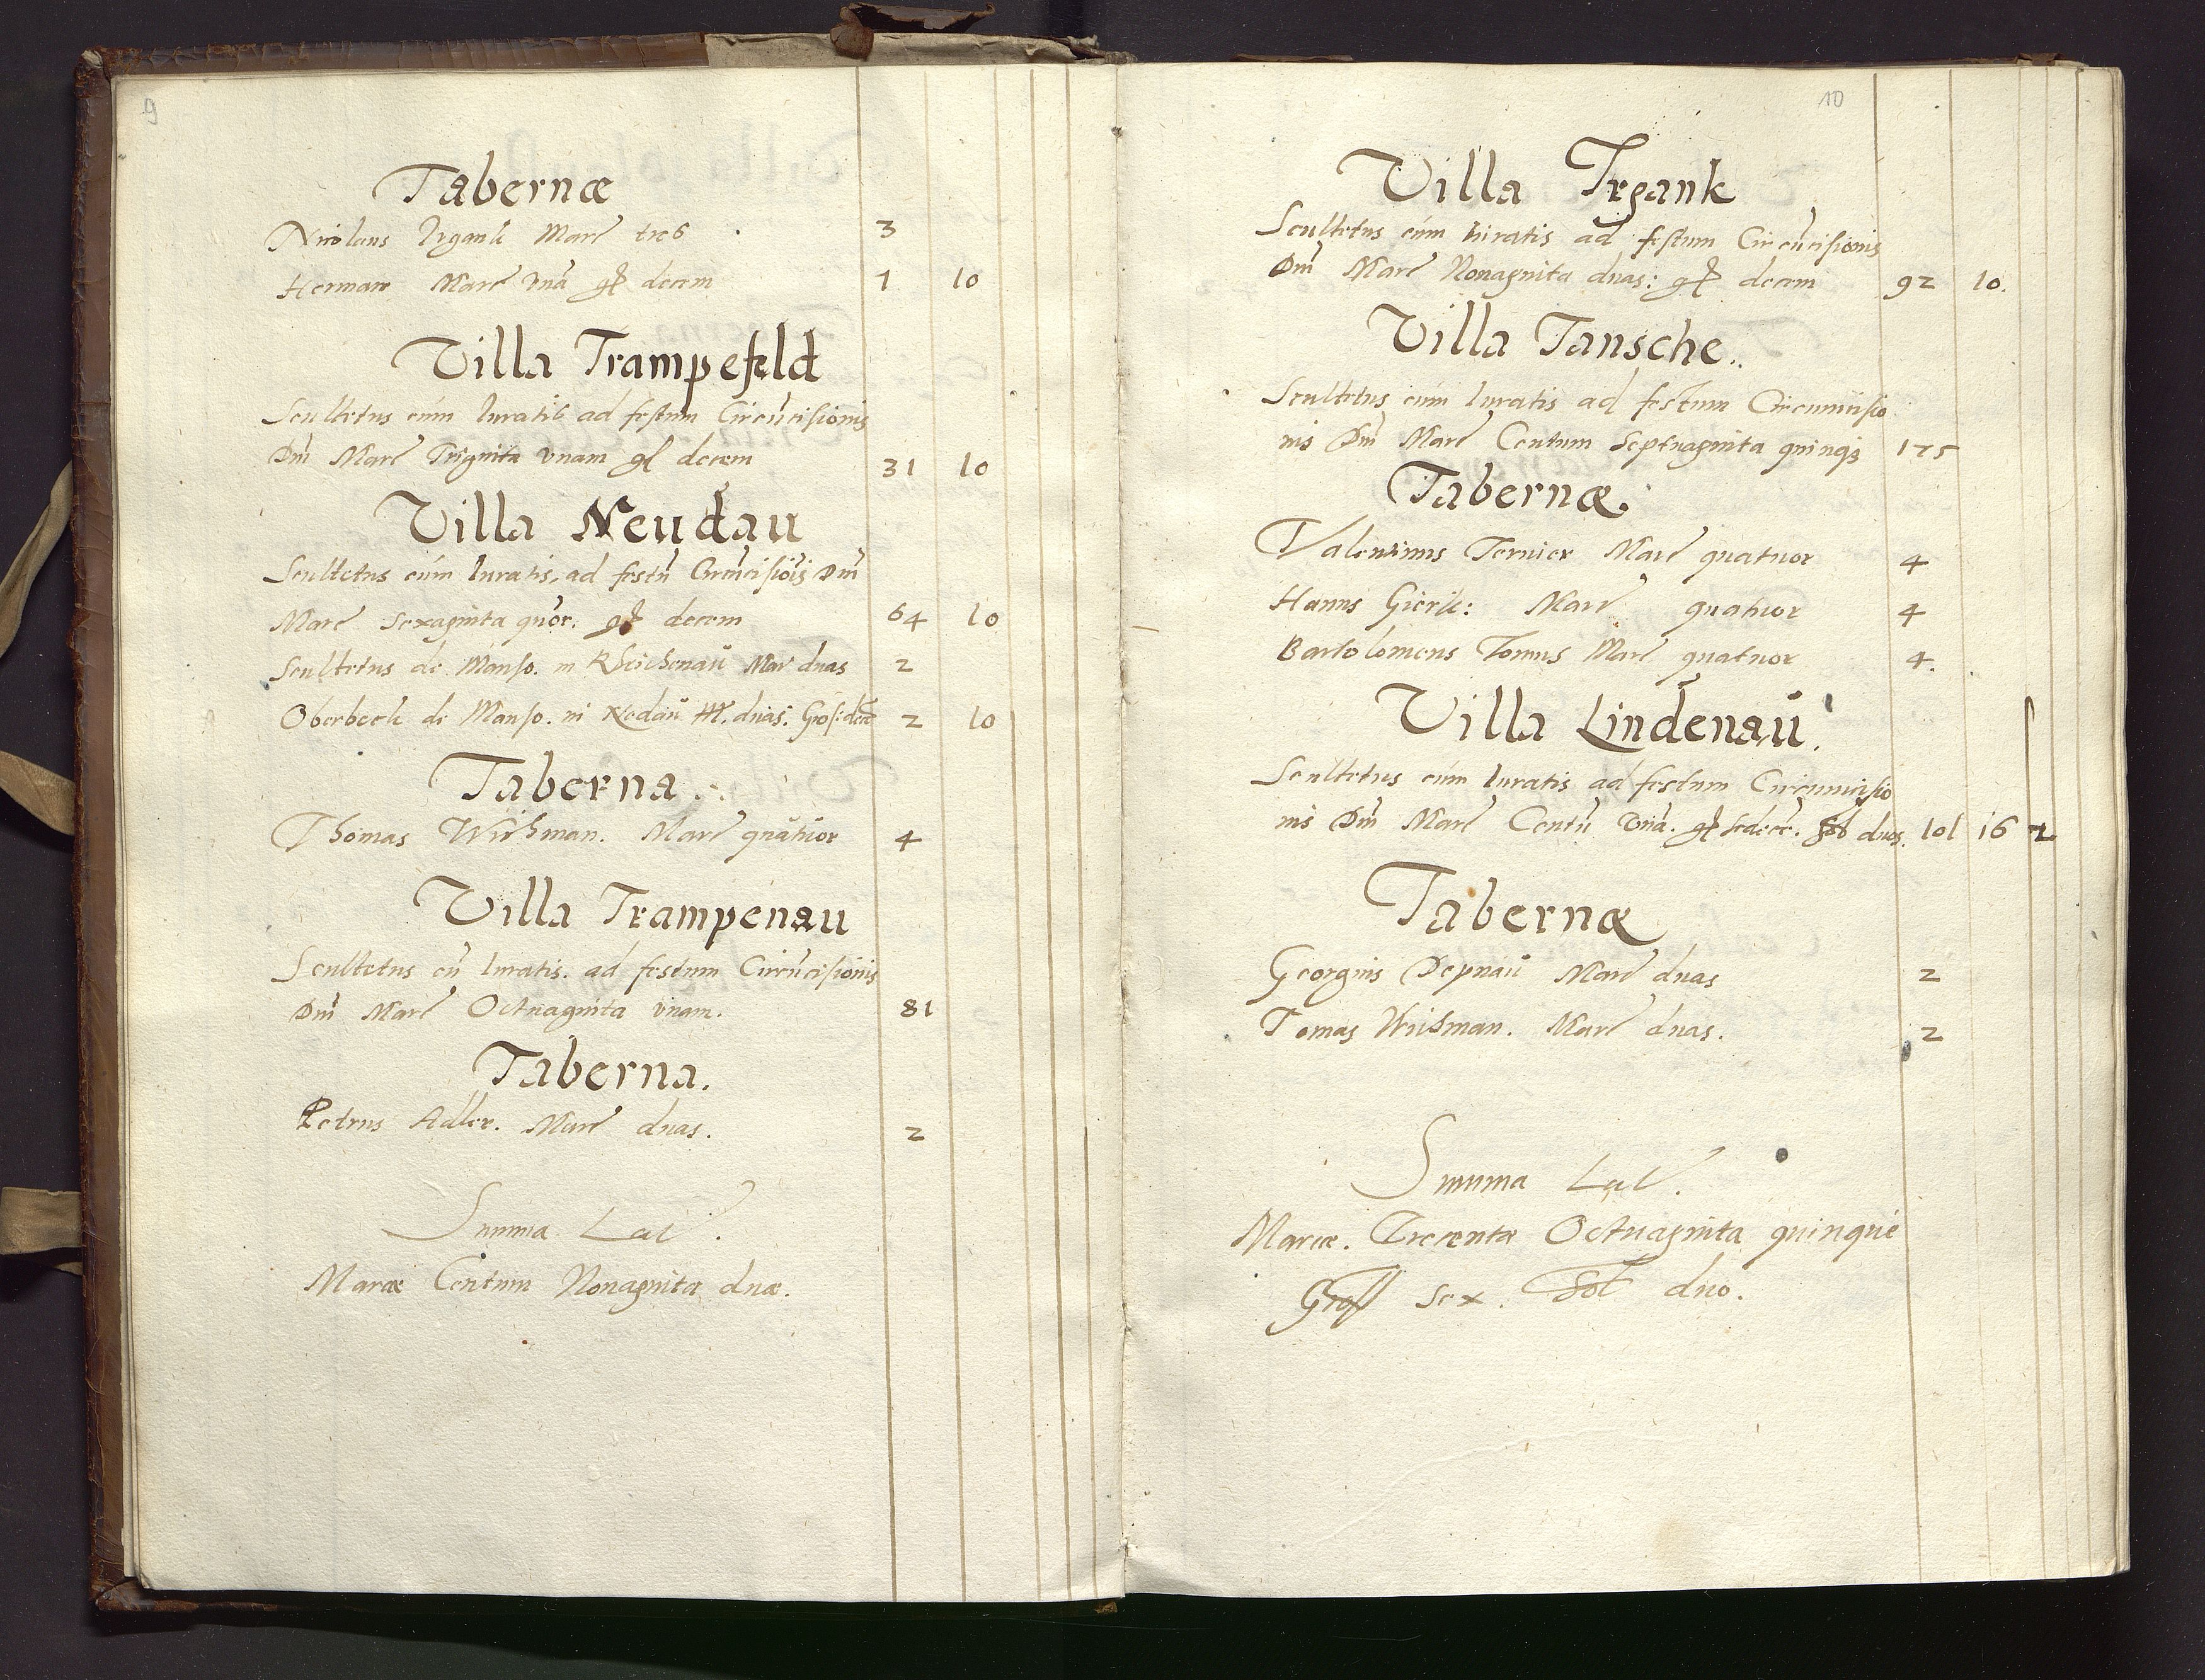 9
Tabernæ
Nicolaus Irgank Marc tres 3
Herman Marc vnā gl decem 1 10
Villa Trampefeld
Scultetus cúm Iuratis ad festum Circūcisionis
Dnī Marc Triginta vnam gl decem 31 10
Villa Neudau
Scultetus cúm Iuratis, ad festū Circūcisiōis Dnī
Marc Sexaginta quōr. gl decem 64 10
Scultetus de Manso. in Rheichenaŭ Mar duas 2
Oberbeck de Manso. in Nedaŭ M. duas. Gros: decē 2 10
Taberna.
Thomas Wichman. Marc quătŭor 4
Villa Trampenau
Scultetus cū Iuratis. ad festum Circūcisionis
Dnī Marc Octuaginta vnam. 81
Taberna.
Petrus Adler. Marc duas. 2
Summa Lat.
Marcæ Centum Nonaginta duæ.
10
Villa Irgank
Scultetus cúm Iuratis ad festum Circūcisionis
Dnī Marc Nonaginta duas: gl decem 92 10.
Villa Tansche.
Scultetus cúm Iuratis ad festum Circumcisio
nis Dnī Marc Centum Septuaginta quinqȝ 175
Tabernæ.
Valentinus Ternier Marc quatuor 4
Hanns Gierk: Marc quatuor 4
Bartolomeus Tomus Marc quatuor 4.
Villa Lindenaŭ.
Scultetus cúm Iuratis ad festum Circumcisio
nis Dnī Marc Centū Vnā. gl sedecē. sol duos. 101 16 2
Tabernæ
Georgius Depnaŭ Marc duas 2
Tomas Wichman. Marc duas. 2
Summa Lat.
Marcæ. Trecentæ Octuaginta quinque
Gross Sex. Sol duo.